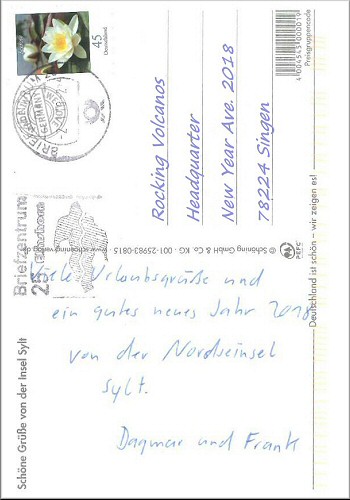 45
Deutschland
BRIEFZENTRUM
Rocking Volcanos
Headquarter
New Year Ave. 2018
78224 Singen
4004545400019
Preisgruppencode
Briefzentrum
25
© Schöning GmbH & Co. KG · 001-25983-0815
PEFC
Viele Urlaubsgrüße und
ein gutes neues Jahr 2018
von der Nordseeinsel
Sylt.
Dagmar und Frank
Schöne Grüße von der Insel Sylt
Deutschland ist schön – wir zeigen es!